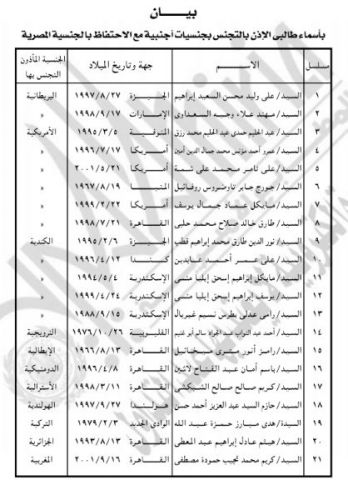 بيـــان
بأسماء طالبى الإذن بالتجنس بجنسيات أجنبية مع الاحتفاظ بالجنسية المصرية
مسلسل الاســـم جهة وتاريخ الميلاد الجنسية المأذون التجنس بها
١ السيد/ على وليد محسن السعيد إبراهيم الجيـزة ١٩٩٧/٨/٢٧ البريطانية
٢ السيد/ مهند علاء وجه السعداوى الإمارات ١٩٩٨/٩/١٧ »
٣ السيد/ عبد الحليم حمدى عبد الحليم محمد رزق المنوفية ١٩٩٥/٣/٥ الأمريكية
٤ السيد/ عمرو أحمد مؤنس محمد جمال الدين أمين أمريكا ١٩٩٦/٧/١٧ »
٥ السيد/ على ناصر محمد على شمة أمريكا ٢٠٠١/٥/٢١ »
٦ السيد/ جورج جابر تاوضروس روفائيل المنيا ١٩٦٧/٨/١٩ »
٧ السيد/ مايكل عماد جمال يوسف أمريكا ١٩٩٩/٢/٢٢ »
٨ السيد/ طارق خالد صلاح محمد حلبى القاهرة ١٩٩٨/٧/٢١ »
٩ السيد/ نور الدين طارق محمد إبراهيم قطب الجيزة ١٩٩٥/٢/٦ الكندية
١٠ السيد/ على عمر أحمد عابدين كندا ١٩٩٦/٤/١٢ »
١١ السيد/ مايكل إبراهيم إسحق إيليا متى الإسكندرية ١٩٩٤/٥/٤ »
١٢ السيد/ يوسف إبراهيم إسحق إيليا متى الإسكندرية ١٩٩٩/٤/٢٤ »
١٣ السيد/ رامى عدلى بطرس نسيم غبريال الإسكندرية ١٩٨٨/٩/١٥ »
١٤ السيد/ أحمد عبد التواب عبد الجواد سالم أبو غنيم القليوبية ١٩٧٦/١٠/٢٦ النرويجية
١٥ السيد/ رامز أنور بشرى ميخائيل القاهرة ١٩٦٦/٨/١٣ الإيطالية
١٦ السيد/ باسم أمان عبد الفتاح لاشين القاهرة ١٩٩٦/٤/٨ الدومنيكية
١٧ السيد/ كريم صالح صالح الشبكشى القاهرة ١٩٩٨/٣/١١ الأسترالية
١٨ السيد/ حازم السيد عبد العزيز أحمد حسن هولندا ١٩٩٧/٩/٢٧ الهولندية
١٩ السيدة/ هدى مبارز حمزة عبد اللـه الوادى الجديد ١٩٧٩/٢/٣ التركية
٢٠ السيد/ هيثم عادل إبراهيم عبد المعطى القاهرة ١٩٩٣/٨/١٣ الجزائرية
٢١ السيد/ كريم محمد نجيب حمودة مصطفى القاهرة ٢٠٠١/٩/١٦ المغربية